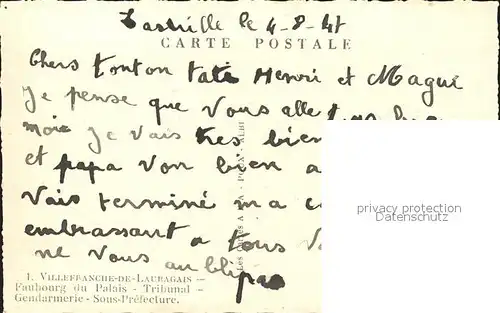 le 4-8-47
CARTE POSTALE
Chers tonton tata Henri et Magui
Je pense que vous alle
moi je vais tres bien
et papa von bien a
Vais terminé ma c
embrassant a tous v
ne vous aublipas
privacy protection
Datenschutz
1. VILLEFRANCHE-DE-LAURAGAIS —
Faubourg du Palais - Tribunal —
Gendarmerie - Sous-Préfecture.